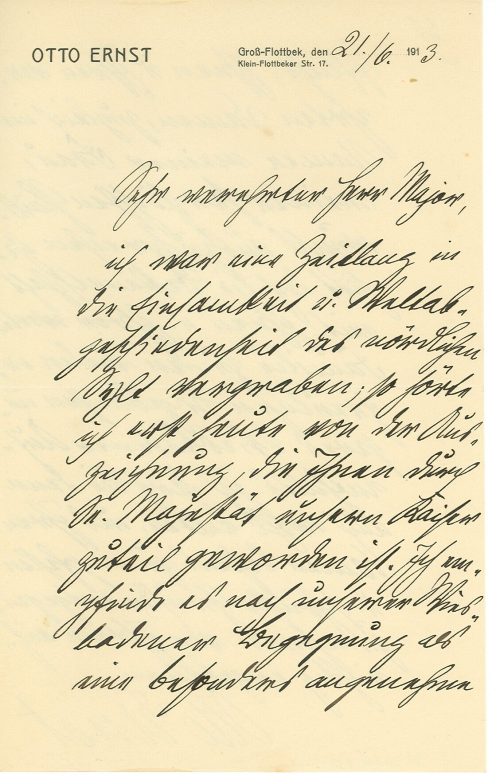 OTTO ERNST
Groß-Flottbek, den 21./6. 1913.
Klein-Flottbeker Str. 17.
Sehr verehrter Herr Major,
ich war eine Zeitlang in
die Einsamkeit u. Weltab-
geschiedenheit des nördlichen
Sylt vergraben; so hörte
ich erst heute von der Aus-
zeichnung, die Ihnen durch
Se. Majestät unsern Kaiser
zuteil geworden ist. Ich em-
pfinde es nach unserer Wies-
badener Begegnung als
eine besonders angenehme